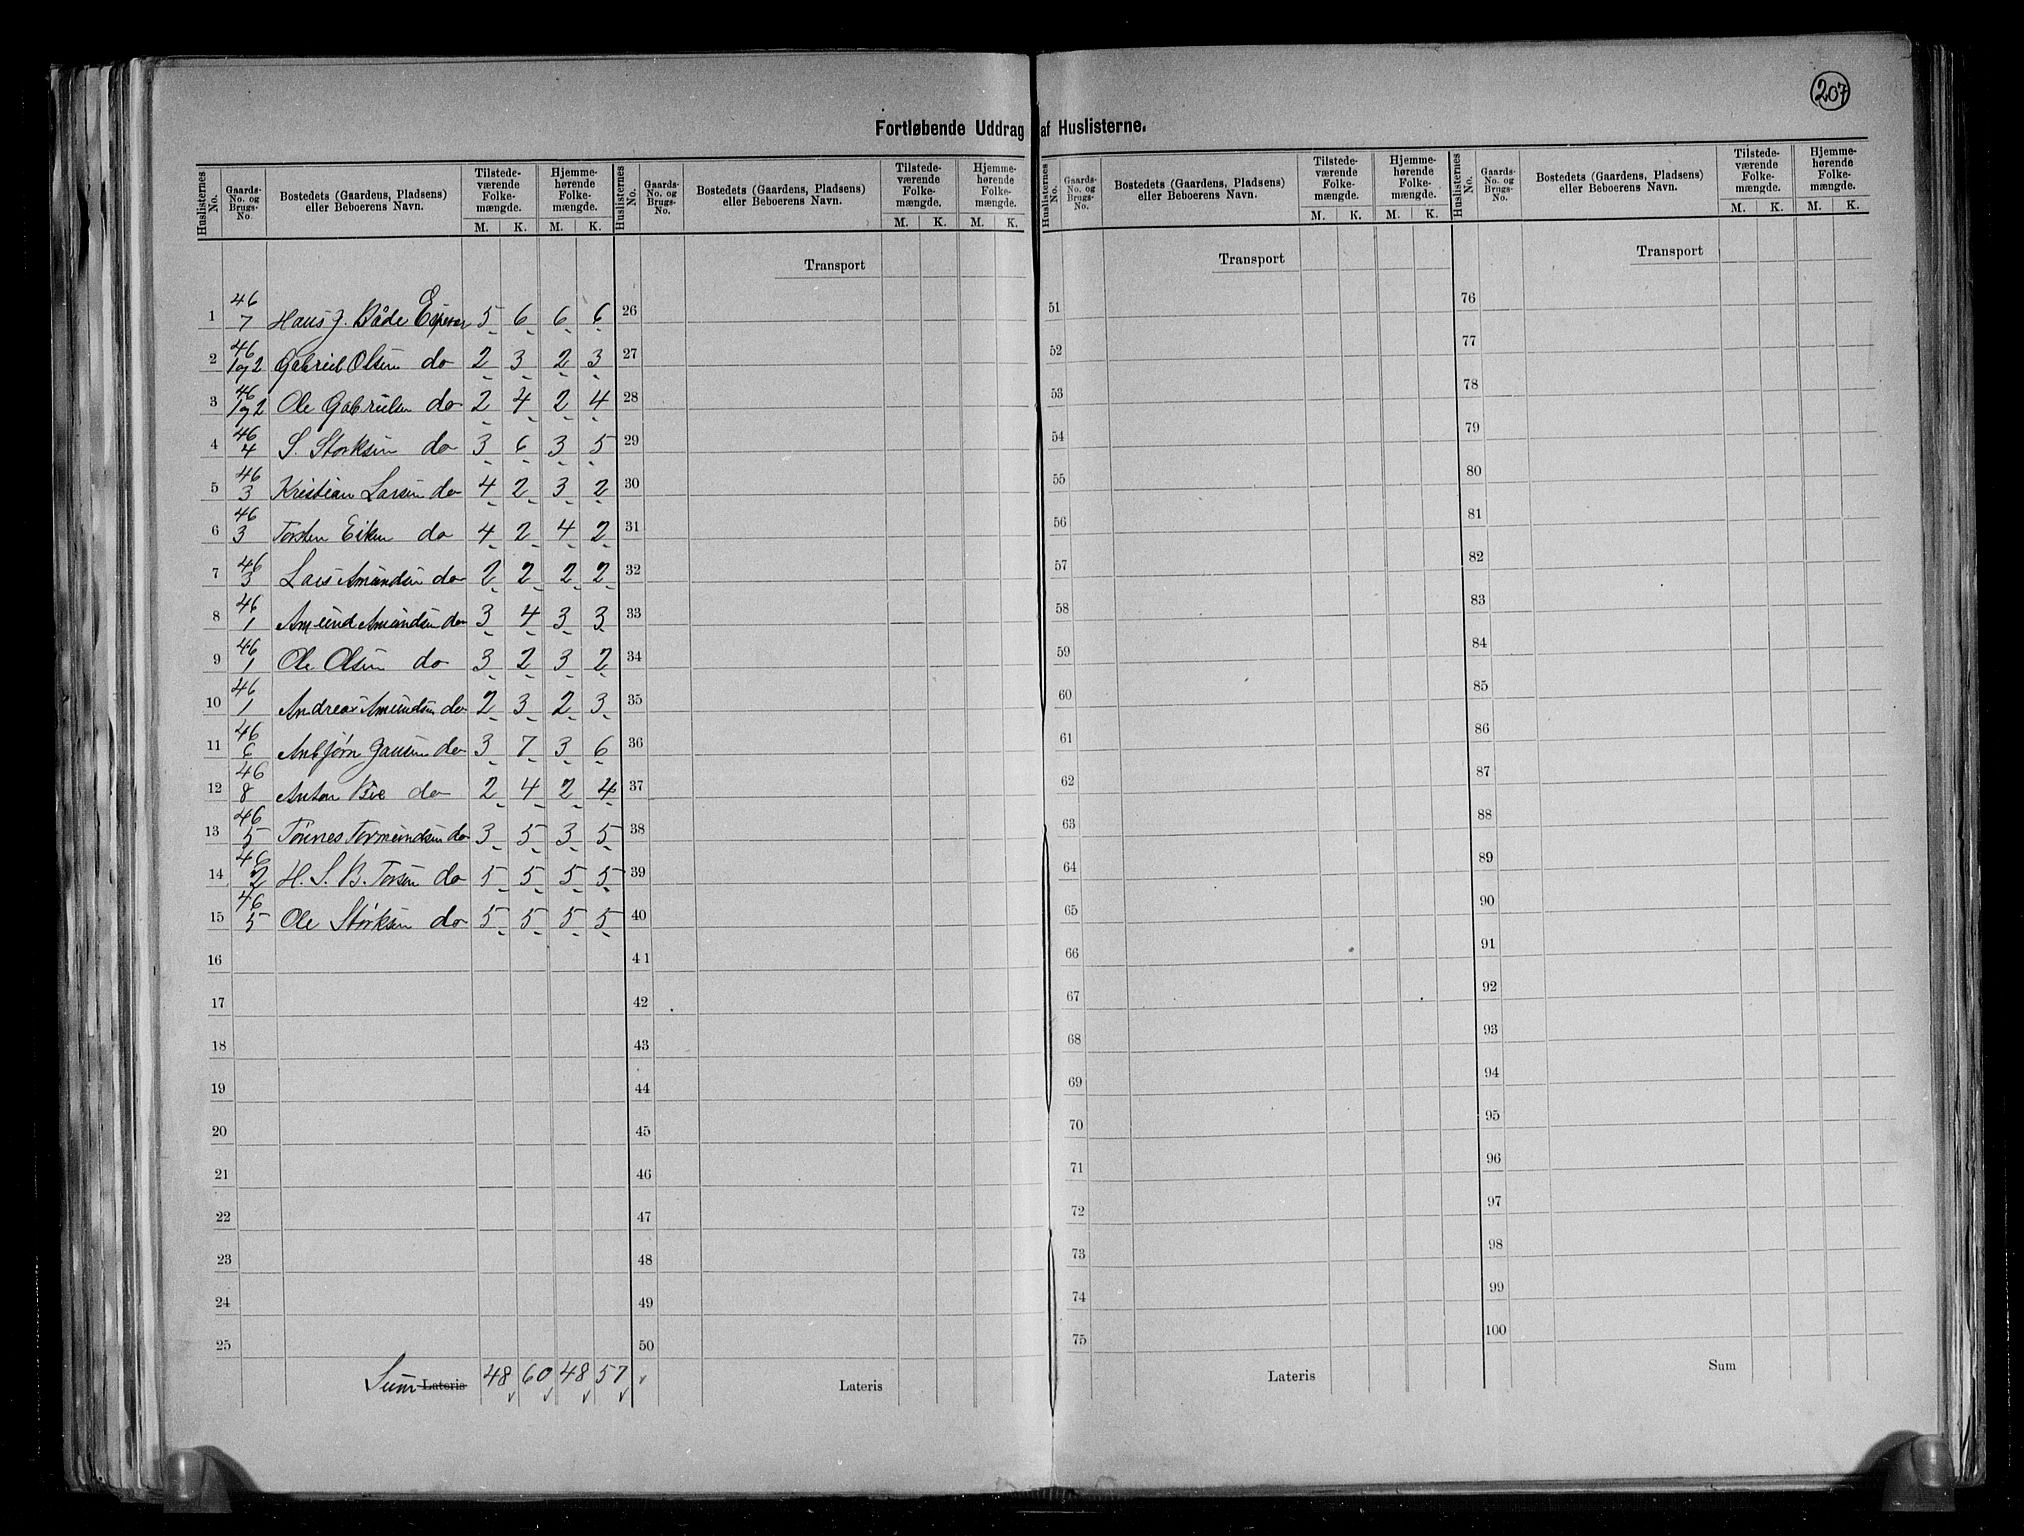 207
Fortløbende Uddrag af Huslisterne.
Huslisternes No. Gaards-No. og Brugs-No. Bostedets (Gaardens, Pladsens) eller Beboerens Navn. Tilstedeværende Folkemængde. M. K. Hjemmehørende Folkemængde. M. K.
Huslisternes No. Gaards-No. og Brugs-No. Bostedets (Gaardens, Pladsens) eller Beboerens Navn. Tilstedeværende Folkemængde. M. K. Hjemmehørende Folkemængde. M. K.
Huslisternes No. Gaards-No. og Brugs-No. Bostedets (Gaardens, Pladsens) eller Beboerens Navn. Tilstedeværende Folkemængde. M. K. Hjemmehørende Folkemængde. M. K.
Huslisternes No. Gaards-No. og Brugs-No. Bostedets (Gaardens, Pladsens) eller Beboerens Navn. Tilstedeværende Folkemængde. M. K. Hjemmehørende Folkemængde. M. K.
1 46 7 Hans J. Både Espevær 5 6 6 6
2 46 1 og 2 Gabriel Olsen do 2 3 2 3
3 46 1 og 2 Ole Gabrielsen do 2 4 2 4
4 46 4 S. Storksen do 3 6 3 5
5 46 3 Kristian Larsen do 4 2 3 2
6 46 3 Torsten Eiken do 4 2 4 2
7 46 3 Lars Amundsen do 2 2 2 2
8 46 1 Amund Amundsen do 3 4 3 3
9 46 1 Ole Olsen do 3 2 3 2
10 46 1 Andreas Amundsen do 2 3 2 3
11 46 6 Anbjørn Jansen do 3 7 3 6
12 46 8 Anton do 2 4 2 4
13 46 5 Tønnes Tormundsen do 3 5 3 5
14 46 2 H. S. B. Torsen do 5 5 5 5
15 46 5 Ole Størksen do 5 5 5 5
16
17
18
19
20
21
22
23
24
25
Sum Lateris 48 60 48 57
Transport
26
27
28
29
30
31
32
33
34
35
36
37
38
39
40
41
42
43
44
45
46
47
48
49
50
Lateris
Transport
51
52
53
54
55
56
57
58
59
60
61
62
63
64
65
66
67
68
69
70
71
72
73
74
75
Lateris
Transport
76
77
78
79
80
81
82
83
84
85
86
87
88
89
90
91
92
93
94
95
96
97
98
99
100
Sum